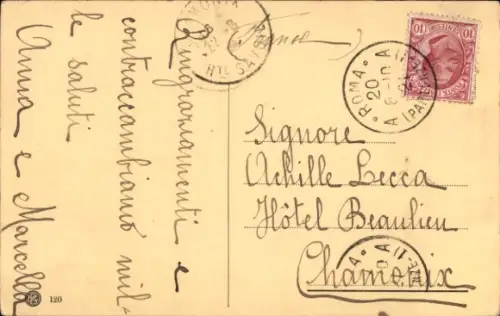 Ringraziamenti e
contraccambiamo mil-
le saluti
Anna e Marcella
France
Signore
Achille Lecca
Hôtel Beaulieu
Chamonix
ROMA
20
10
120